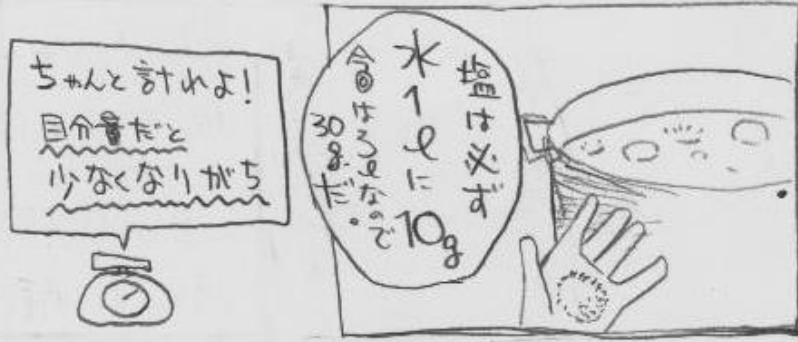 ちゃんと計れよ!
目分量だと
少なくなりがち
塩は必ず
水1ℓに10g
今回は3ℓなので
30gだ。